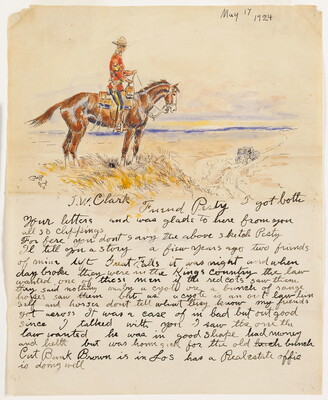 May 17
1924
J.W. Clark
Friend Pesty I got both
Your letters and was glad to here from you
also clippings
For fere you dont savy the above sketch Pesty
Il tell you a story a few years ago two friends
of mine left Great Falls it was night and when
day broke they were in the Kings country the law
wanted one of these men if the red cots saw them
they said nothing maby a cyote or a bunch of range
horses saw them but as a cyote is an out law him
self and horses dont tell what they know my friends
got across It was a case of in bad but out good
since I talked with you I saw the one the
law wanted he was in good shape had money
and helth but was home sick for the old bunch
Cut Bank Brown is in Los has a Real estate offic
is doing well